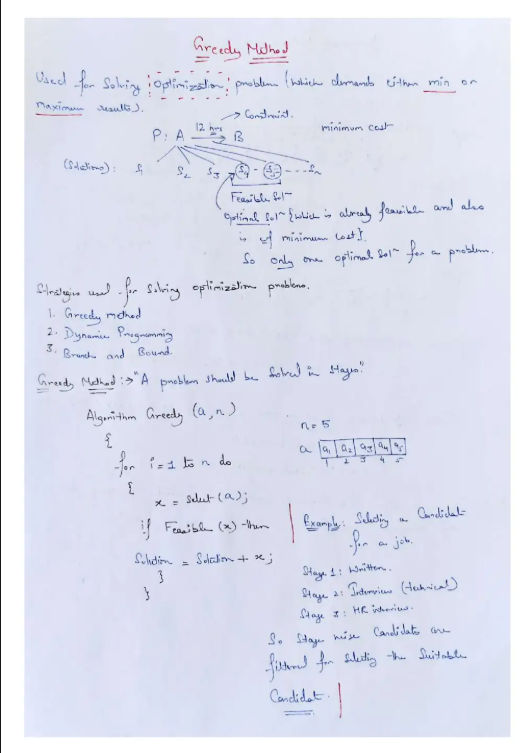 Greedy Method
Used for Solving Optimization problem (which demands either min or
maximum results).
→ Constraint.
P: A 12 hrs → B minimum cost
(Solutions): S1 S2 S3 S4 - S5 - ... Sn
Feasible Sol~
Optimal Sol~ {which is already feasible and also
is of minimum cost}.
So only one optimal Sol~ for a problem.
Strategies used for Solving optimization problems.
1. Greedy method
2. Dynamic Programming
3. Branch and Bound.
Greedy Method :→ "A problem should be Solved in Stages."
Algorithm Greedy (a, n)
{
for i = 1 to n do
{
x = Select (a);
if Feasible (x) then
Solution = Solution + x;
}
}
n = 5
a a1 a2 a3 a4 a5
1 2 3 4 5
Example: Selecting a Candidate
for a job.
Stage 1: Written.
Stage 2: Interview (technical)
Stage 3: HR interview.
So Stage wise Candidate are
filtered for Selecting the Suitable
Candidate.